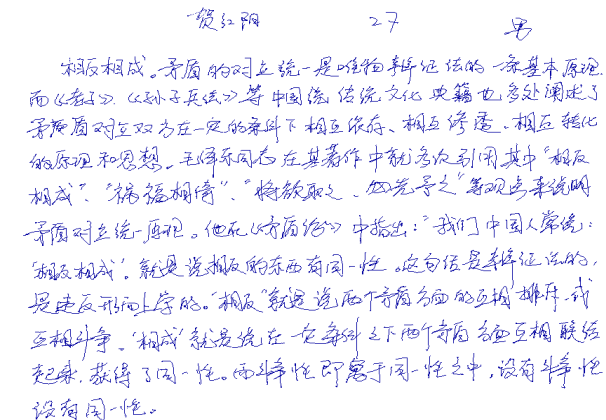 贺红阳 27 男
相反相成。矛盾的对立统一是唯物辩证法的一条基本原理.
而《老子》、《孙子兵法》等中国统传统文化典籍也多处阐述了
矛盾对立双方在一定的条件下相互依存、相互渗透、相互转化
的原理和思想。毛泽东同志在其著作中就多次引用其中"相反
相成"、"祸福相倚"、"将欲取之、必先予之"等观点来说明
矛盾对立统一原理。他在《矛盾论》中指出:"我们中国人常说:
'相反相成'。就是说相反的东西有同一性。这句话是辩证法的,
是违反形而上学的。'相反'就是说两个矛盾方面的互相排斥,或
互相斗争。'相成'就是说在一定条件之下两个矛盾方面互相联结
起来,获得了同一性。而斗争性即寓于同一性之中,没有斗争性
没有同一性。